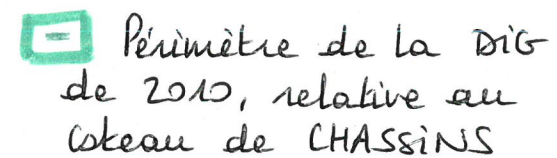 Périmètre de la DiG
de 2010, relative au
Coteau de CHASSiNS